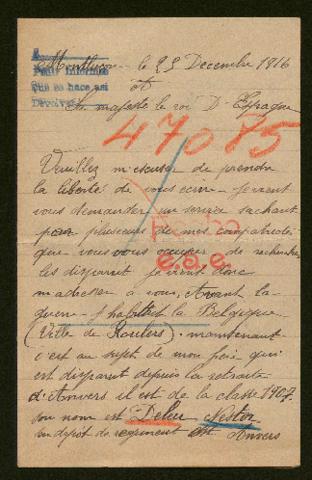 Montluçon le 23 Decembre 1916
Para informar
Que se hace asi
A
Sa majesté le roi D'Espagne
47075
Veuillez m'excuser de prendre
la liberté de vous ecrire Je viens
vous demander un service sachant
pour plusieurs de mes compatriotes
que vous vous occupez de rechercher
les disparut Je viens donc
e.a.e.
m'adresser a vous, Avant la
guerre J'habittait la Belgique
(Ville de Roulers), maintenant
c'est au sujet de mon frère qui
est disparut depuis la retraite
d'Anvers il est de la classe 1907
son nom est Deleu Nestor
son depot de regiment est Anvers